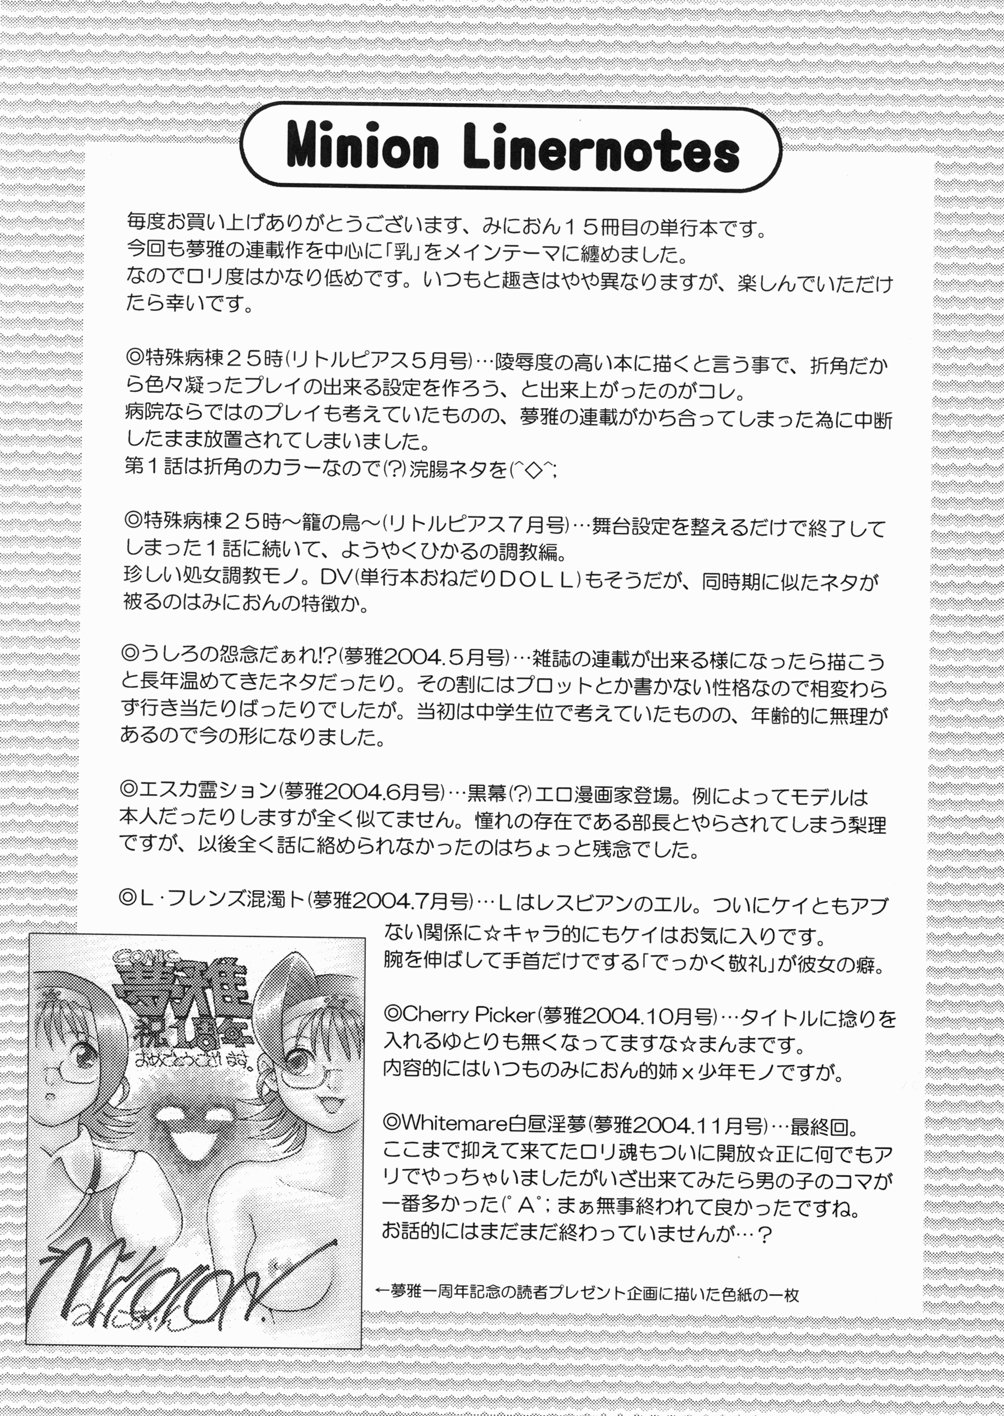 Minion Linernotes
毎度お買い上げありがとうございます、みにおん15冊目の単行本です。
今回も夢雅の連載作を中心に「乳」をメインテーマに纏めました。
なのでロリ度はかなり低めです。いつもと趣きはやや異なりますが、楽しんでいただけ
たら幸いです。
◎特殊病棟25時(リトルピアス5月号)…陵辱度の高い本に描くと言う事で、折角だか
ら色々凝ったプレイの出来る設定を作ろう、と出来上がったのがコレ。
病院ならではのプレイも考えていたものの、夢雅の連載がかち合ってしまった為に中断
したまま放置されてしまいました。
第1話は折角のカラーなので(?)浣腸ネタを(^◇^;
◎特殊病棟25時～籠の鳥～(リトルピアス7月号)…舞台設定を整えるだけで終了して
しまった1話に続いて、ようやくひかるの調教編。
珍しい処女調教モノ。DV(単行本おねだりDOLL)もそうだが、同時期に似たネタが
被るのはみにおんの特徴か。
◎うしろの怨念だぁれ!?(夢雅2004.5月号)…雑誌の連載が出来る様になったら描こう
と長年温めてきたネタだったり。その割にはプロットとか書かない性格なので相変わら
ず行き当たりばったりでしたが。当初は中学生位で考えていたものの、年齢的に無理が
あるので今の形になりました。
◎エスカ霊ション(夢雅2004.6月号)…黒幕(?)エロ漫画家登場。例によってモデルは
本人だったりしますが全く似てません。憧れの存在である部長とやらされてしまう梨理
ですが、以後全く話に絡められなかったのはちょっと残念でした。
◎L・フレンズ混濁ト(夢雅2004.7月号)…Lはレスビアンのエル。ついにケイともアブ
ない関係に☆キャラ的にもケイはお気に入りです。
腕を伸ばして手首だけでする「でっかく敬礼」が彼女の癖。
◎Cherry Picker(夢雅2004.10月号)…タイトルに捻りを
入れるゆとりも無くなってますな☆まんまです。
内容的にはいつものみにおん的姉x少年モノですが。
◎Whitemare白昼淫夢(夢雅2004.11月号)…最終回。
ここまで抑えて来てたロリ魂もついに開放☆正に何でもア
リでやっちゃいましたがいざ出来てみたら男の子のコマが
一番多かった(ﾟAﾟ; まぁ無事終われて良かったですね。
お話的にはまだまだ終わっていませんが…？
←夢雅一周年記念の読者プレゼント企画に描いた色紙の一枚
COMIC
夢雅
祝1周年
おめでとうございます。
Minion.
みにおん